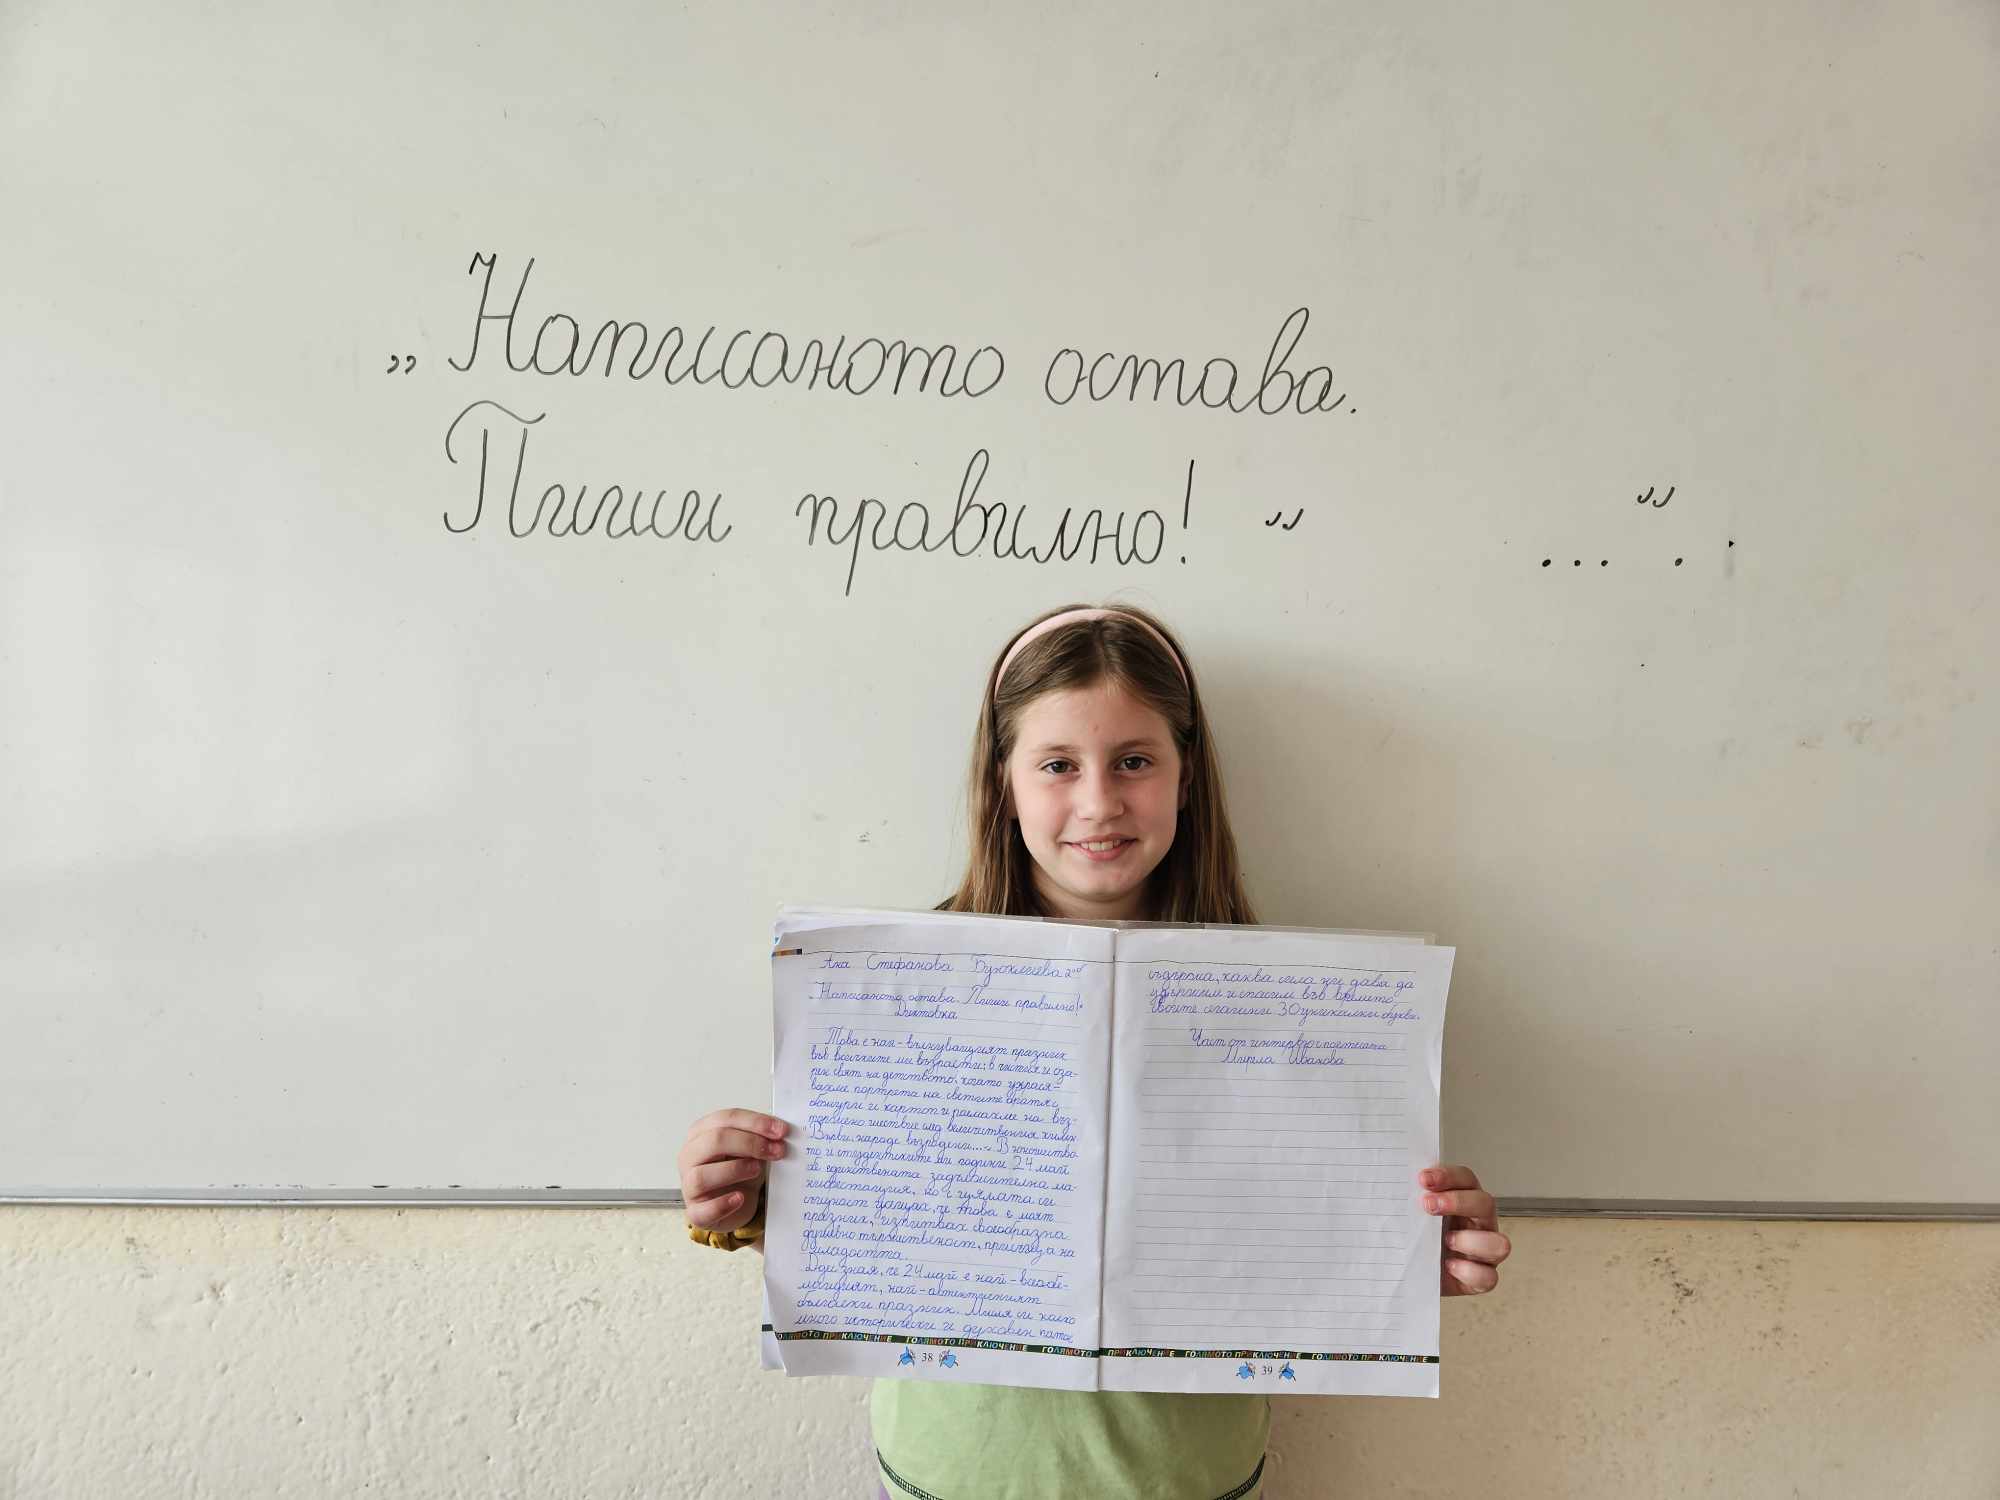 „Написаното остава.
Пиши правилно!“ ...“.
Ана Стефанова Бузоклиева
„Написаното остава. Пиши правилно!“
Диктовка
Това е най-вълнуващият празник
във всичките ми възрасти: в чистия и оза-
рен свят на детството, когато украся-
вахме портрета на светите братя с
божури и картон и поемахме на въз-
торжено шествие след величествения химн
"Върви, народе възродени...“ В юношество-
то и студентските ми години 24 май
бе единствената задължителна ма-
нифестация, но с цялата си
същност усещах, че това е моят
празник, изпитвах своеобразна
душевно тържественост, присъща на
младостта.
Днес зная, че 24 май е най-всеобе-
майният, най-автентичният
български празник. Мисля си колко
много исторически и духовен патос
съдържа, каква сила ни дава да
удържим и спасим във времето
своите слагани 30 уникални букви.
Част от интервю с поетесата
Мирела Иванова
ГОЛЯМОТО ПРИКЛЮЧЕНИЕ ГОЛЯМОТО ПРИКЛЮЧЕНИЕ ГОЛЯМОТО ПРИКЛЮЧЕНИЕ ГОЛЯМОТО ПРИКЛЮЧЕНИЕ ГОЛЯМОТО ПРИКЛЮЧЕНИЕ
38
39